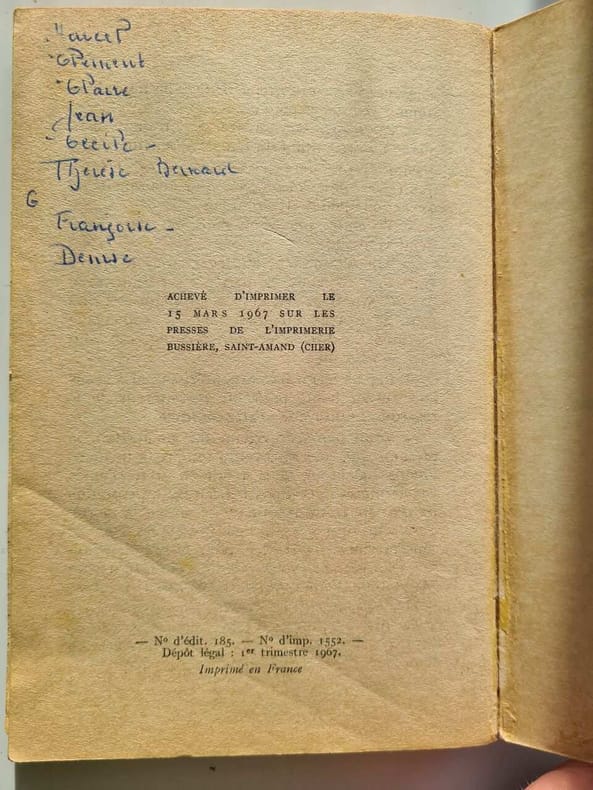 Marcel
Clément
Claire
Jean
Cécile -
Thérèse Bernard
G
Françoise -
Denise
ACHEVÉ D'IMPRIMER LE
15 MARS 1967 SUR LES
PRESSES DE L'IMPRIMERIE
BUSSIÈRE, SAINT-AMAND (CHER)
— Nº d'édit. 185. — Nº d'imp. 1552. —
Dépôt légal : 1er trimestre 1967.
Imprimé en France